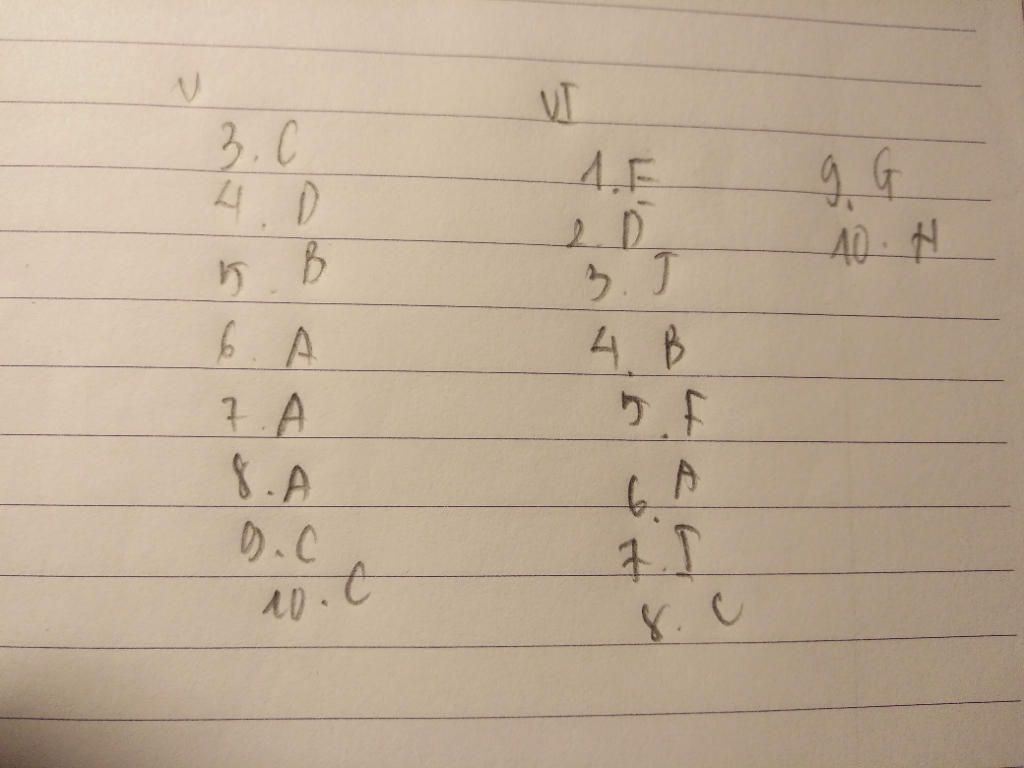 V
3. C
4. D
5. B
6. A
7. A
8. A
9. C
10. C
VI
1. E
2. D
3. J
4. B
5. F
6. A
7. I
8. C
9. G
10. H